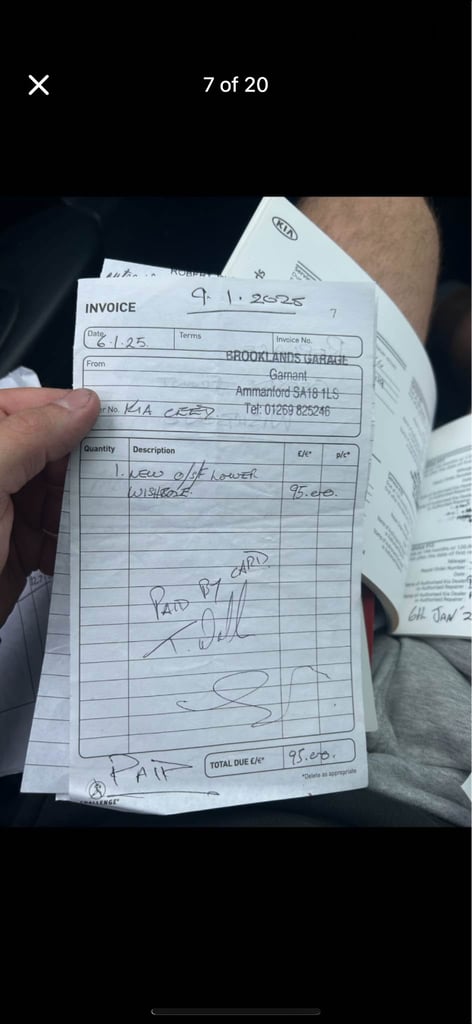 7 of 20
KIA
ROBERT
9.1.2025
INVOICE
7
Date
6.1.25.
Terms
Invoice No.
From
BROOKLANDS GARAGE
Garnant
Ammanford SA18 1LS
Tel: 01269 825246
er No. KIA CEED
Quantity
Description
£/€*
p/c*
1. NEW O/S/F LOWER
WISHBONE.
95.00.
PAID BY CARD
TOTAL DUE £/€*
95.00.
*Delete as appropriate
PAID
CHALLENGE®
6th JAN '2